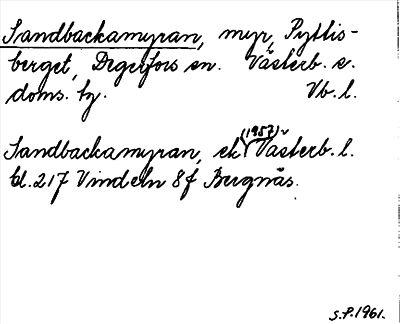 Sandbackamyran, myr, Pyttis-
berget, Degerfors sn. Västerb. s.
doms. hg. Vb. l.
Sandbackamyran, ek (1957) Västerb. l.
bl. 217 Vindeln 8f Bergnäs.
S.P. 1961.